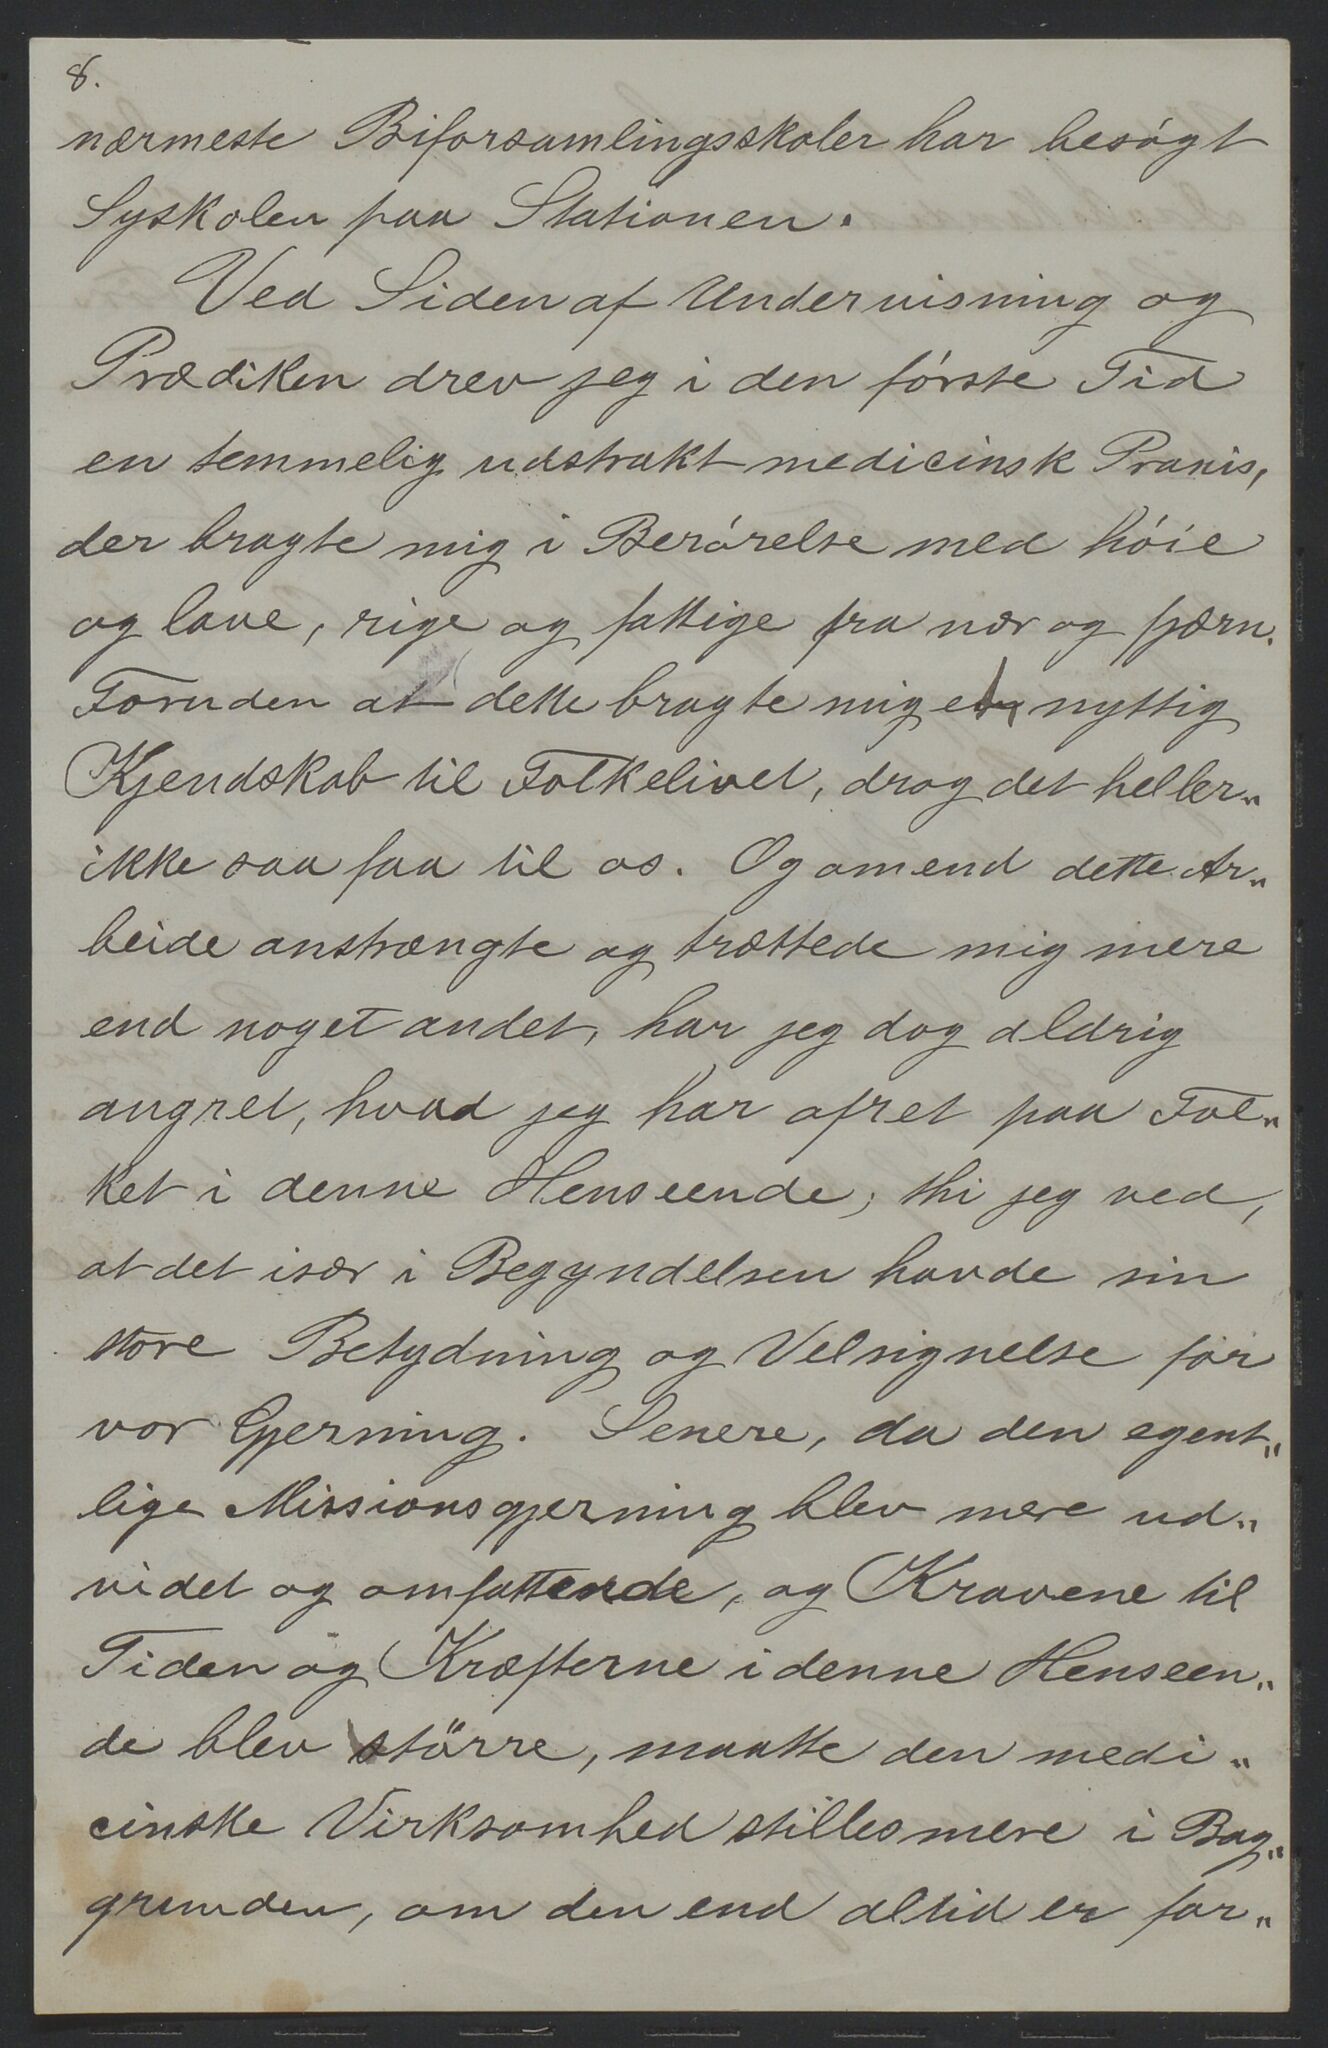 8.
nærmeste Biforsamlingsskoler har besógt
Syskolen paa Stationen.
Ved Siden af Undervisning og
Prædiken drev jeg i den fórste Tid
en temmelig udstrakt medicinsk Praxis,
der bragte mig i Berórelse med hóie
og lave, rige og fattige fra nær og fjærn.
Foruden at dette bragte mig et nyttig
Kjendskab til Folkelivet, drog det heller„
ikke saa faa til os. Og omend dette Ar„
beide anstrængte og trættede mig mere
end noget andet, har jeg dog aldrig
angret, hvad jeg har ofret paa Fol„
ket i denne Henseende; thi jeg ved,
at det især i Begyndelsen havde sin
store Betydning og Velsignelse for
vor Gjerning. Senere, da den egent„
lige Missionsgjerning blev mere ud„
videt og omfattende, og Kravene til
Tiden og Kræfterne i denne Henseen„
de blev större, maatte den medi„
cinske Virksomhed stilles mere i Bag„
grunden, om den end altid er for„